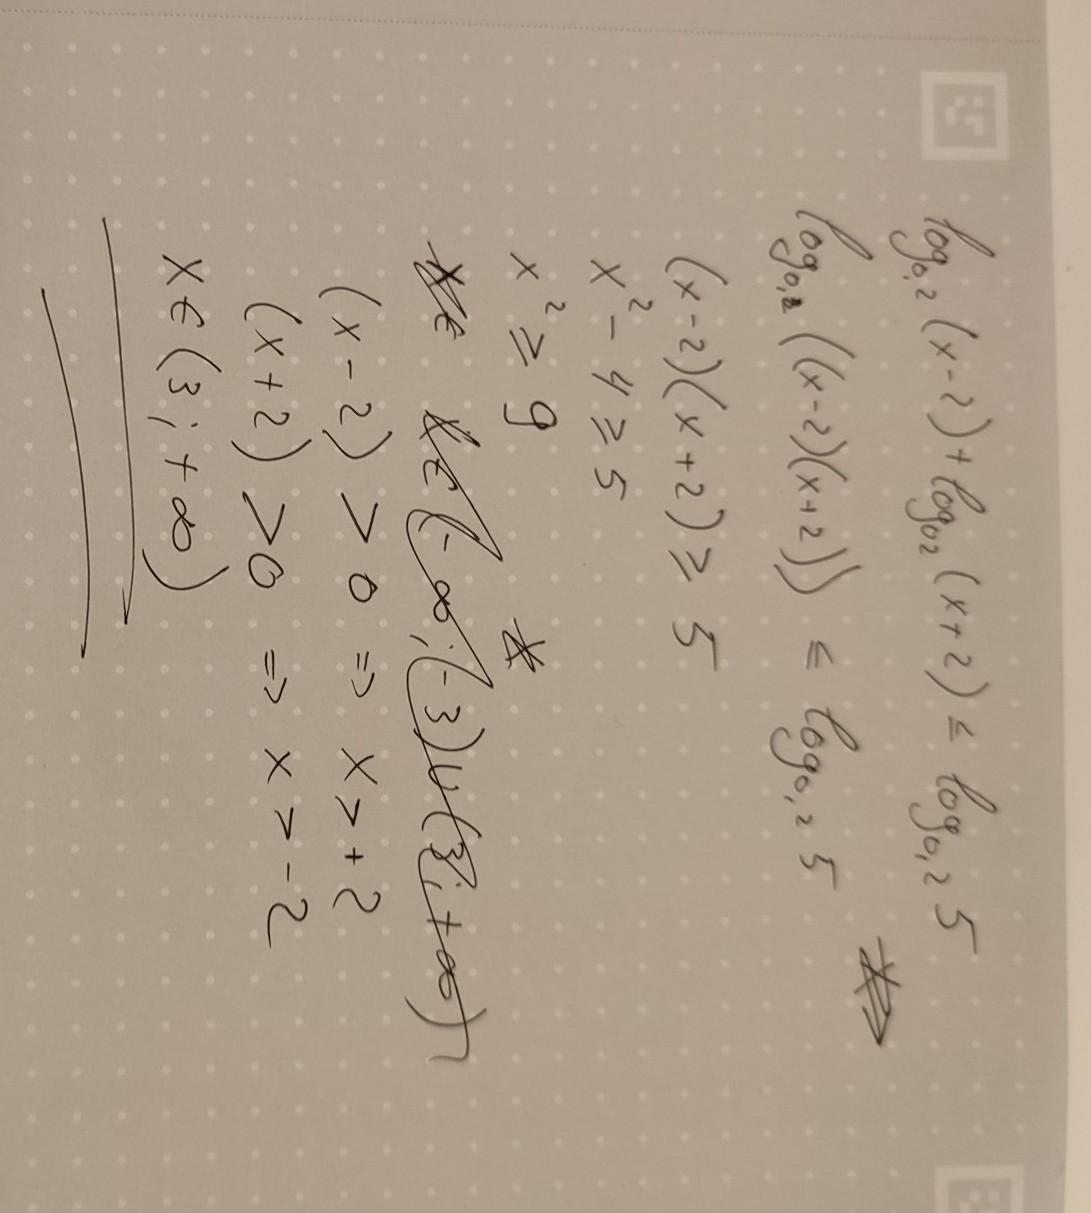 log₀,₂ (x-2) + log₀₂ (x+2) ≤ log₀,₂ 5
log₀,₂ ((x-2)(x+2)) ≤ log₀,₂ 5
(x-2)(x+2) ≥ 5
x² - 4 ≥ 5
x² ≥ 9 *
x∈ x∈ (-∞; -3) ∪ (3; +∞)
(x-2) > 0 ⇒ x > +2
(x+2) > 0 ⇒ x > -2
x ∈ (3; +∞)